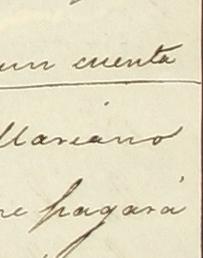 un cuenta
Mariano
me pagará